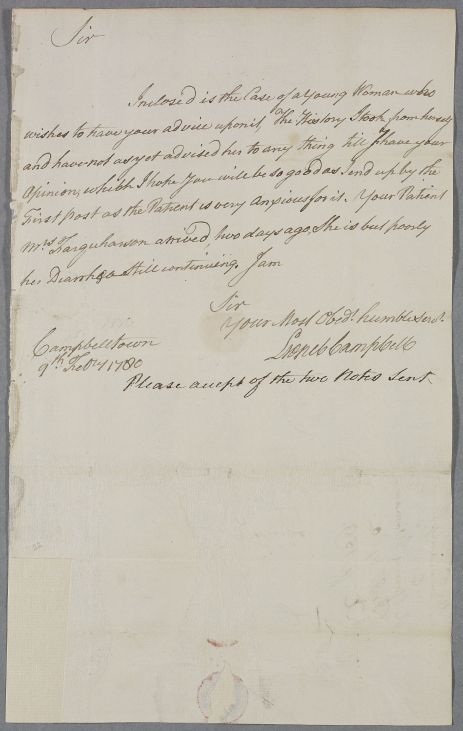 Sir
Inclosed is the Case of a Young Woman who
wishes to have your advice upon it The History I took from herself
and have not as yet advised her to any thing till I have your
Opinion, which I hope You will be so good as Send up by the
First Post as the Patient is very anxious for it. Your Patient
Mrs Farquharson arrived, two days ago, She is but poorly
her Diarrhœa still continuing. I am
Sir
Your Most Obedt. humble Servt.
Campbell
Campbelltown
9th Febry 1780
Please accept of the two Notes Sent.